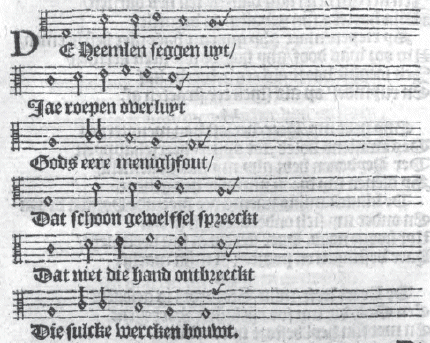 DE Heemlen seggen uyt/
Jae roepen over luyt
Gods eere menighfout/
Dat schoon gewelffel spreeckt
Dat niet die hand ontbreeckt
Die sulcke wercken bouwt.